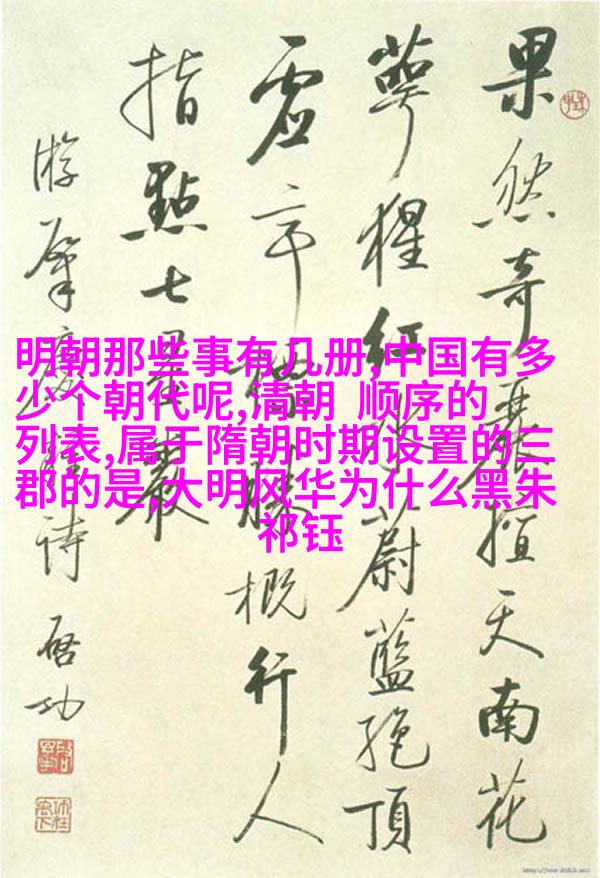 果然奇麗擅天南花
萼猩紅水蔚藍絶頂
虚亭攬勝概行人
指點七星巖
游肇慶詩 啓功
明朝那些事有几册,中国有多
少个朝代呢,清朝 顺序的
列表,属于隋朝时期设置的三
郡的是,大明风华为什么黑朱
祁钰